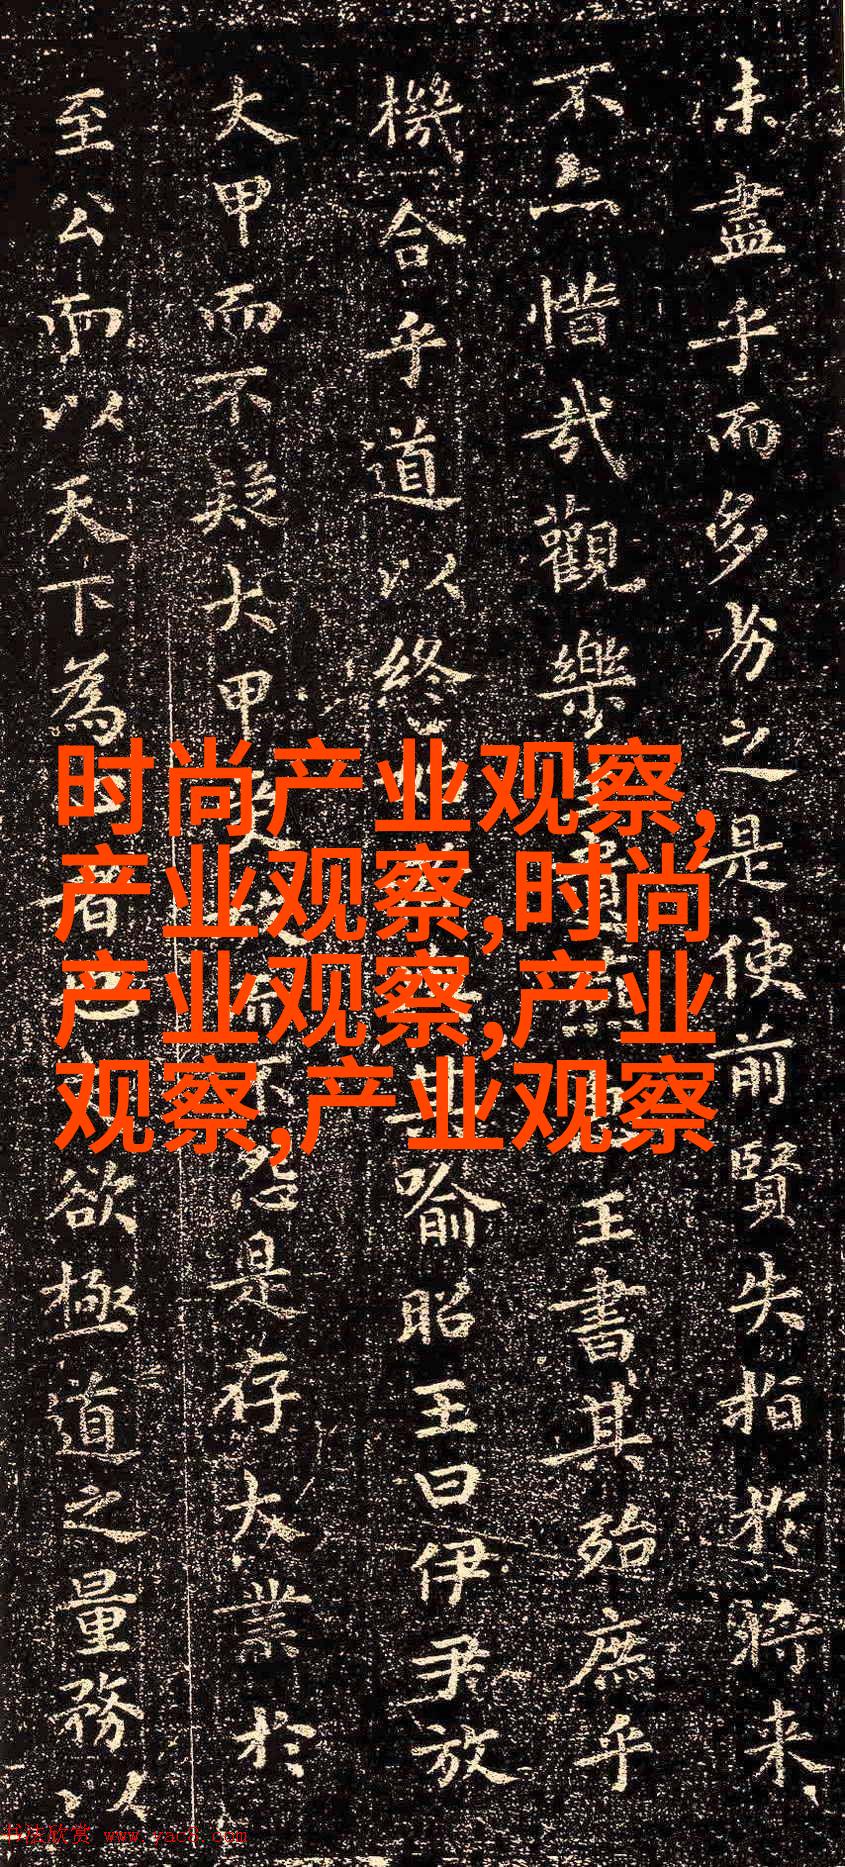 未盡乎而多劣之是使前賢失指於將来
不亦惜哉觀樂遺王書其殆庶乎
機合乎道以終其喻昭王曰伊尹放
大甲而不疑大甲受放而不怨是存大業於
至公而以天下為者也欲極道之量務以
时尚产业观察,
产业观察,时尚
产业观察,产业
观察,产业观察
书法欣赏 www.yac8.com